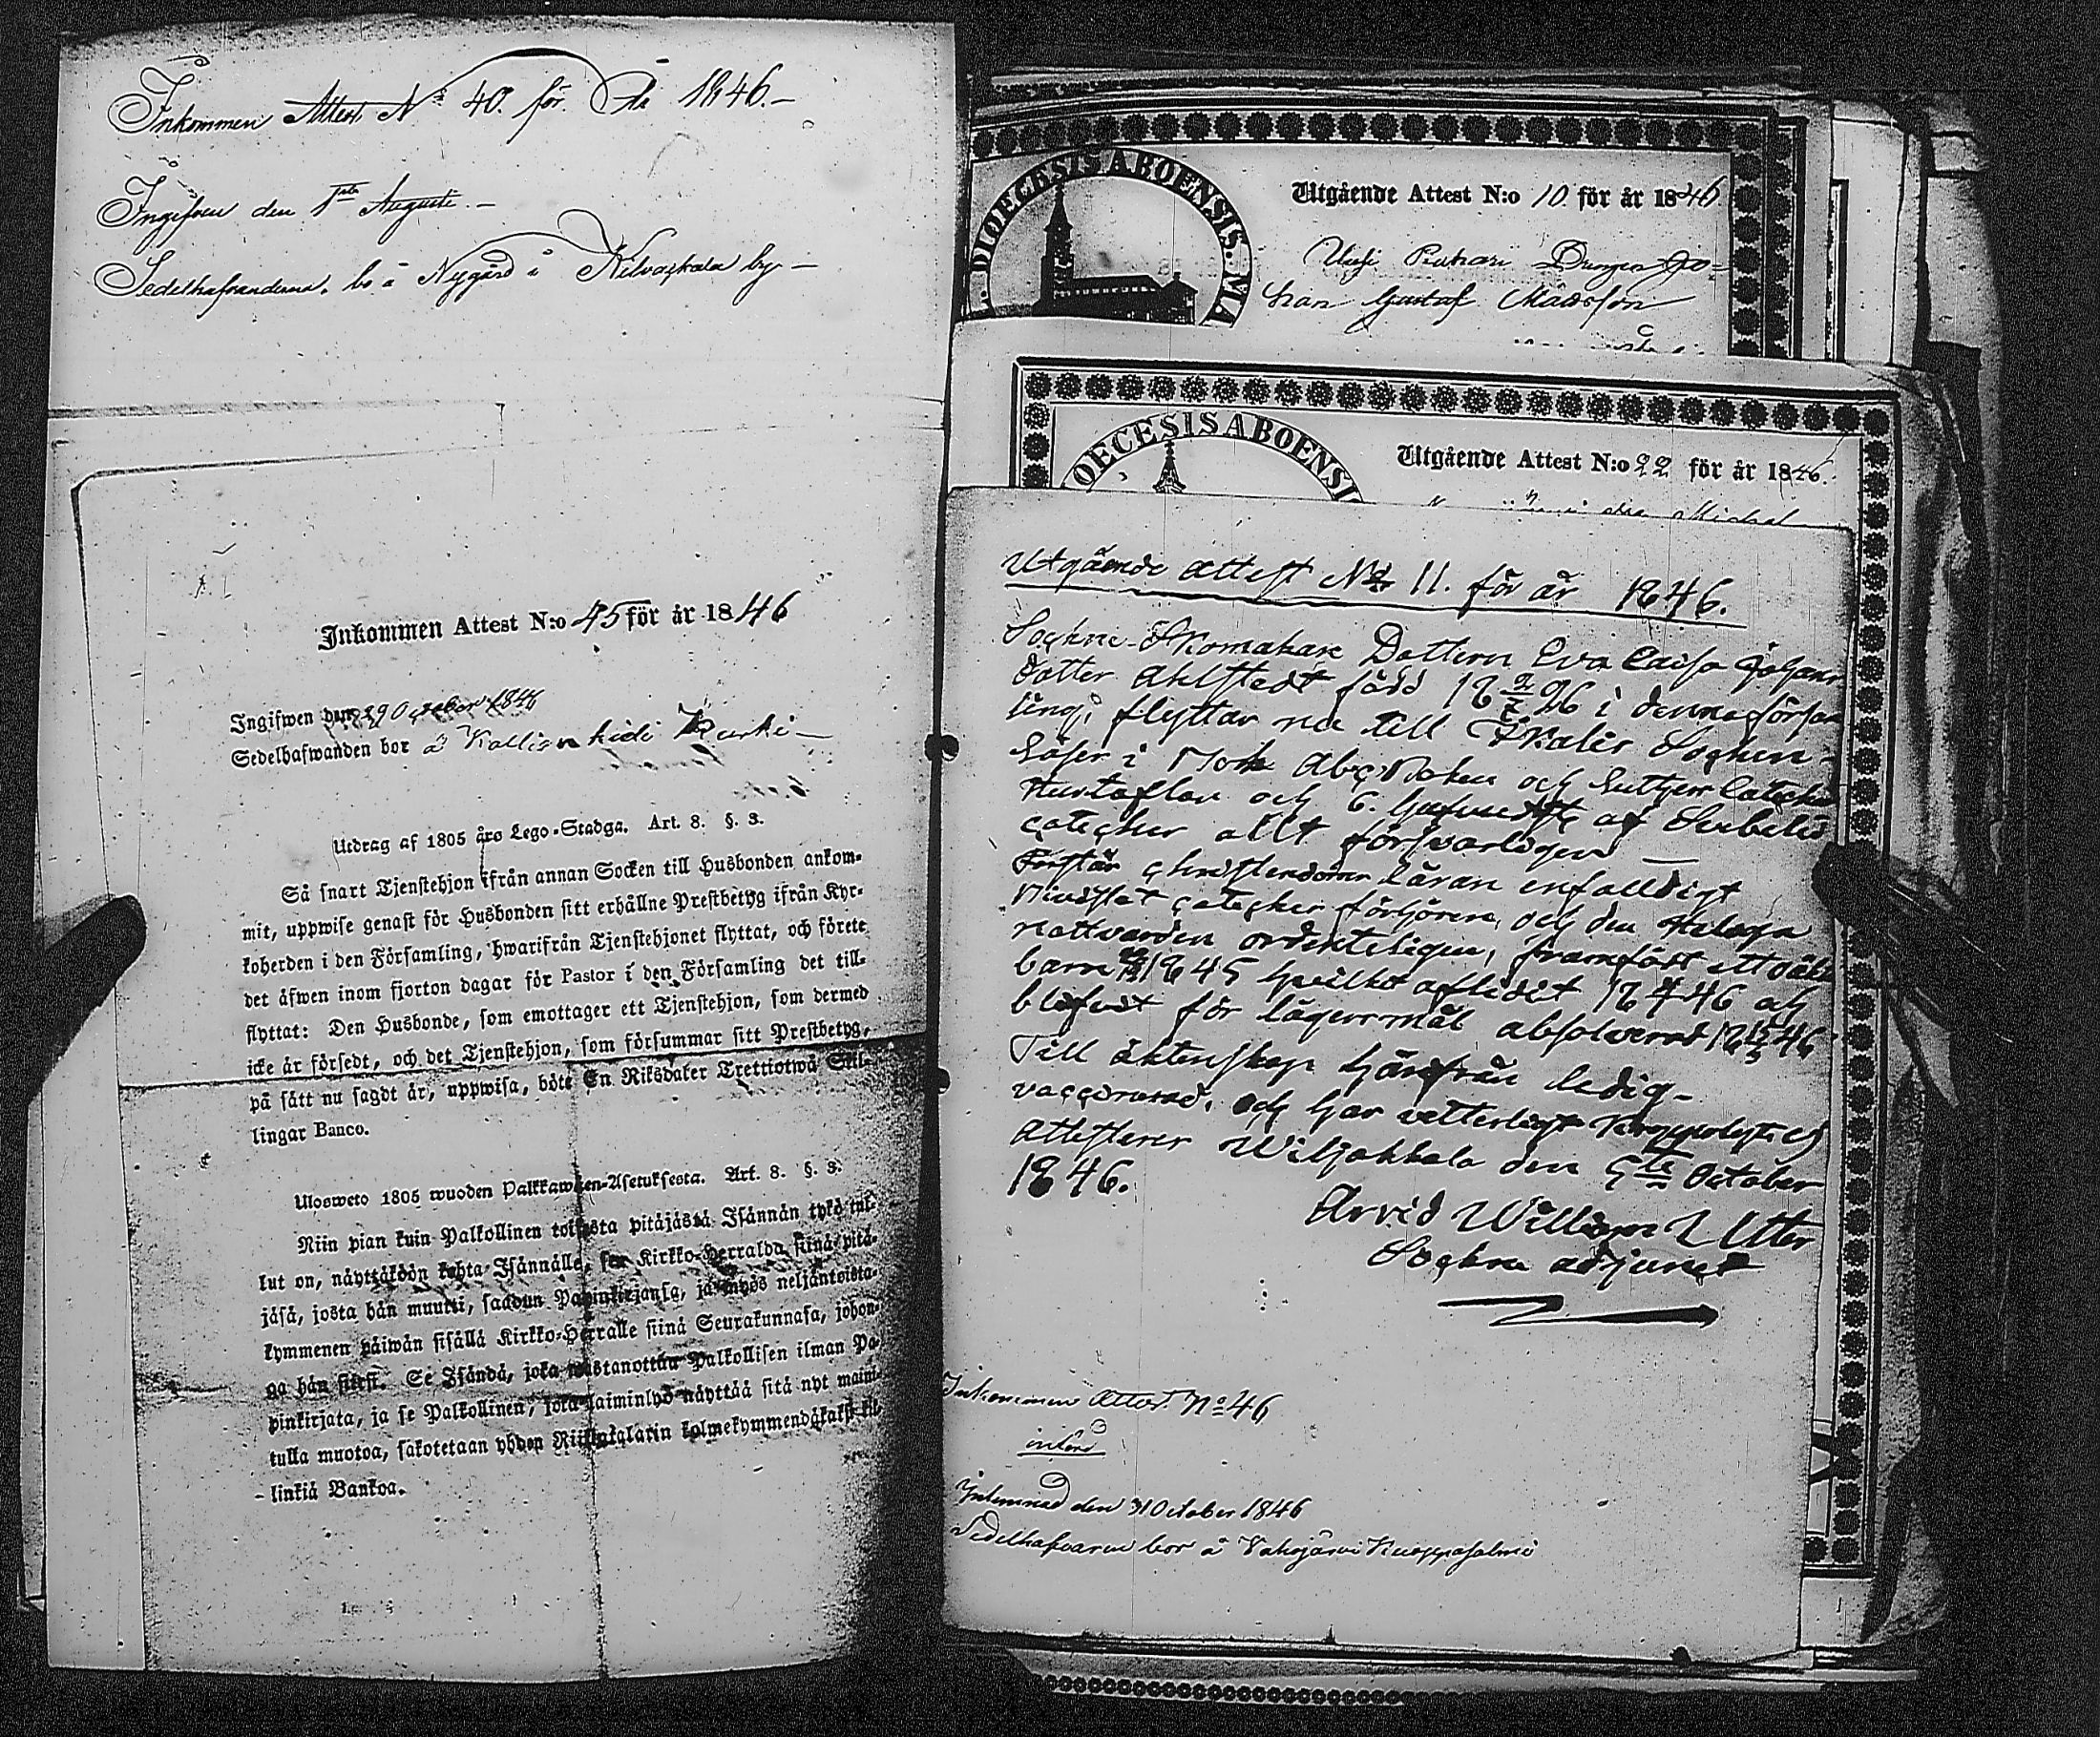 Inkommen Attest No 40. för år 1846.-
Ingifven den 1sta Augusti.-
Sedelhafvanderna bo å Nygård i Kilvakkala by-
Inkommen Attest N:o 45 för år 1846
Ingifwen den 29 October 1846
Sedelhafwanden bor å Kallionkieli Kurki-
Utdrag af 1805 års Lego-Stadga. Art. 8. §. 3.
Så snart Tjenstehjon ifrån annan Socken till Husbonden ankom-
mit, uppwise genast för Husbonden sitt erhållne Prestbetyg ifrån Kyr-
koherden i den Församling, hwarifrån Tjenstehjonet flyttat, och förete
det äfwen inom fjorton dagar för Pastor i den Församling det till-
flyttat: Den Husbonde, som emottager ett Tjenstehjon, som dermed
icke är försedt, och det Tjenstehjon, som försummar sitt Prestbetyg,
på sätt nu sagdt är, uppwisa, böte En Riksdaler Trettiotwå Skil-
lingar Banco.
Ulosweto 1805 wuoden Palkkawäen-Asetuksesta. Art. 8. §. 3.
Niin pian kuin Palkollinen toisesta pitäjästä Isännän tykö tul-
lut on, näyttäköön kohta Isännälle, sen Kirkko-Herralda siinä pitä-
jäsä, josta hän muutti, saadun Papinkirjansa, ja myös neljäntoista-
kymmenen päiwän sisällä Kirkko-Herralle siinä Seurakunnasa, johon-
ga hän siirsi. Se Isändä, joka wastanottaa Palkollisen ilman Pa-
pinkirjata, ja se Palkollinen, joka laiminlyö näyttää sitä nyt maini-
tulla muotoa, sakotetaan yhden Riikintalarin kolmekymmendäkaksi kil-
linkiä Bankoa.
DIOECESIS ABOENSIS. MA
Utgående Attest N:o 10 för år 1846
Uusi Drengen Jo-
han Gustaf Madsson
OECESIS ABOENSI
Utgående Attest N:o 22 för år 1846.
Michel
Utgående attest No 11. för år 1846.
Sockne-Skomakare Dottern Eva Caisa Johans
dotter Ahlstedt född 18 26 i denna försam
ling, flyttar nu till Ikalis Sockn-
Läser i bok Abc-boken och Luthers Catches
Hustaflan och 6. af Svebelii
catecher allt försvarligen
Förstår christendoms läran enfalldigt
Bivistat catecher förhören, och den Heliga
nattvarden ordenteligen, framfödt ett oäkta
barn 1845 hvilket aflidit 18 46 och
blifvit för lägersmål absolverad 18 46
Till äktenskap härifrån ledig-
vaccinerad, och har vetterligt
attesterer Wiljakkala den 5te October
1846.
Arvid Willhem Utter
Sockne adjunct
Inkommen Attest No 46
Inlemnad den 31 October 1846
Sedelhafvaren bor å Vahojärvi Knaappasalmi